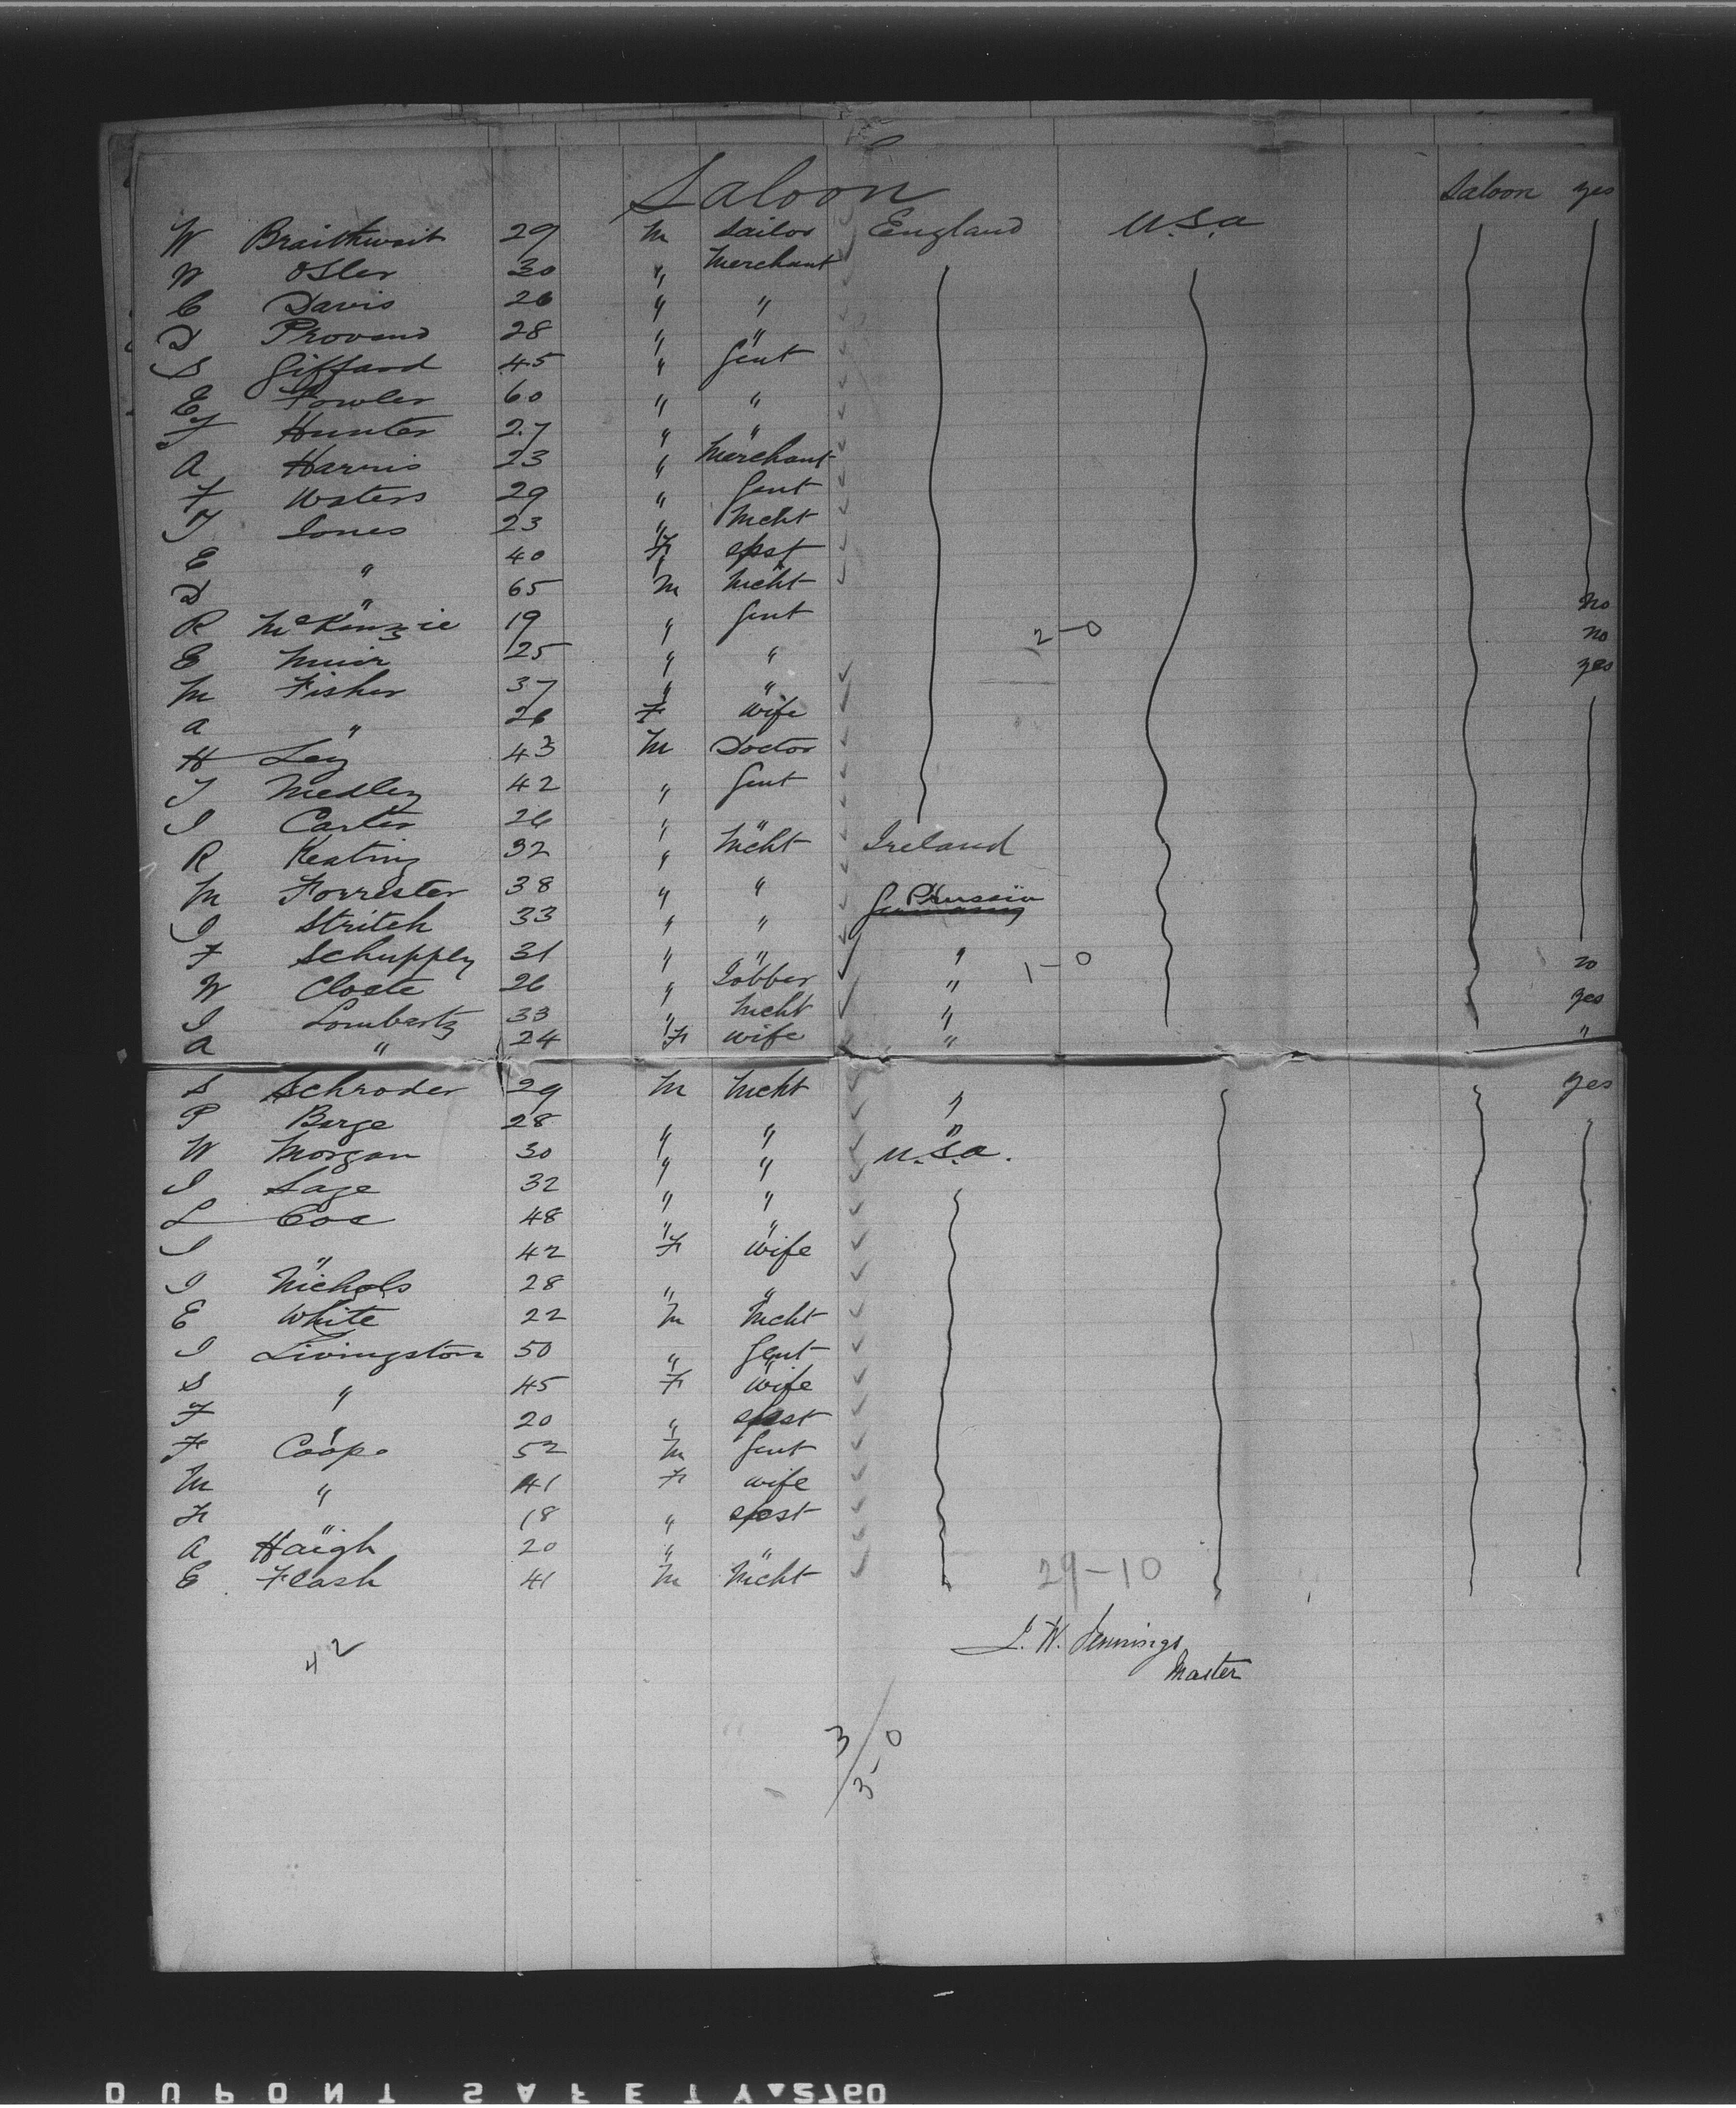 Saloon
Saloon yes
W Braithwait 29 M Sailor England U.S.A
W Osler 30 " Merchant
C Davis 26 " "
D Provand 28 " "
S Giffard 45 " Gent
E Fowler 60 " "
T Hunter 27 " "
A Harris 23 " Merchant
F Waters 29 " Gent
T Jones 23 " Mcht
E " 40 F spst
D " 65 M Mcht
R McKenzie 19 " Gent no
E Muir 25 " " 2-0 no
M Fisher 37 " " yes
A " 26 F Wife
H Ley 43 M Doctor
T Medley 42 " Gent
J Carter 26 " "
R Keating 32 " Mcht Ireland
M Forrester 38 " " Prussia
J Stritch 33 " "
F Schupply 31 " " " 1-0 no
W Cloete 26 " Jobber " yes
J Lombartz 33 " Mcht "
A " 24 F Wife " "
S Schroder 29 M Mcht " yes
P Barge 28 " " "
W Morgan 30 " " U.S.A.
J Sage 32 " "
L Coe 48 " "
J " 42 F Wife
J Nichols 28 " "
E White 22 M Mcht
J Livingston 50 " Gent
S " 45 F Wife
F " 20 " spst
F Coope 52 M Gent
M " 41 F Wife
F " 18 " spst
A Haigh 20 " "
E Flash 41 M Mcht 29-10
42
J. W. Jennings
Master
3/0
3
DUPONT SAFETY 2760